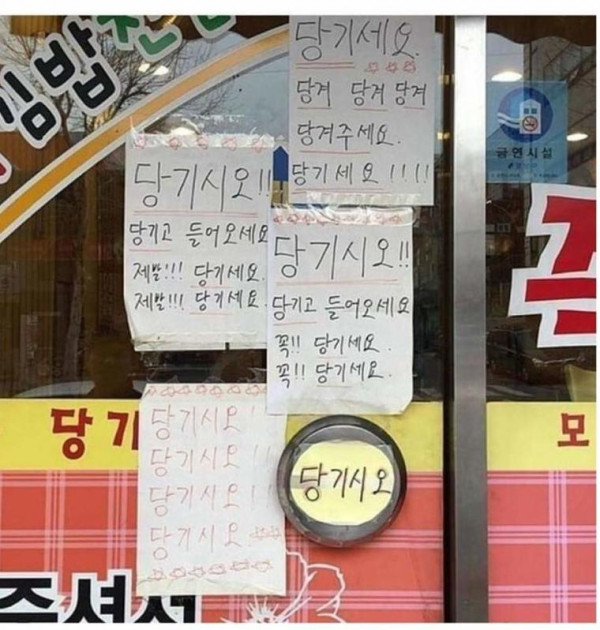 김밥천
당기세요.
당겨 당겨 당겨
당겨주세요.
당기세요!!!!
금연시설
당기시오!!
당기고 들어오세요
제발!!! 당기세요.
제발!!! 당기세요.
당기시오!!
당기고 들어오세요
꼭!! 당기세요.
꼭!! 당기세요.
당기
당기시오!
당기시오!!
당기시오!!
당기시오
당기시오
모
주셔서